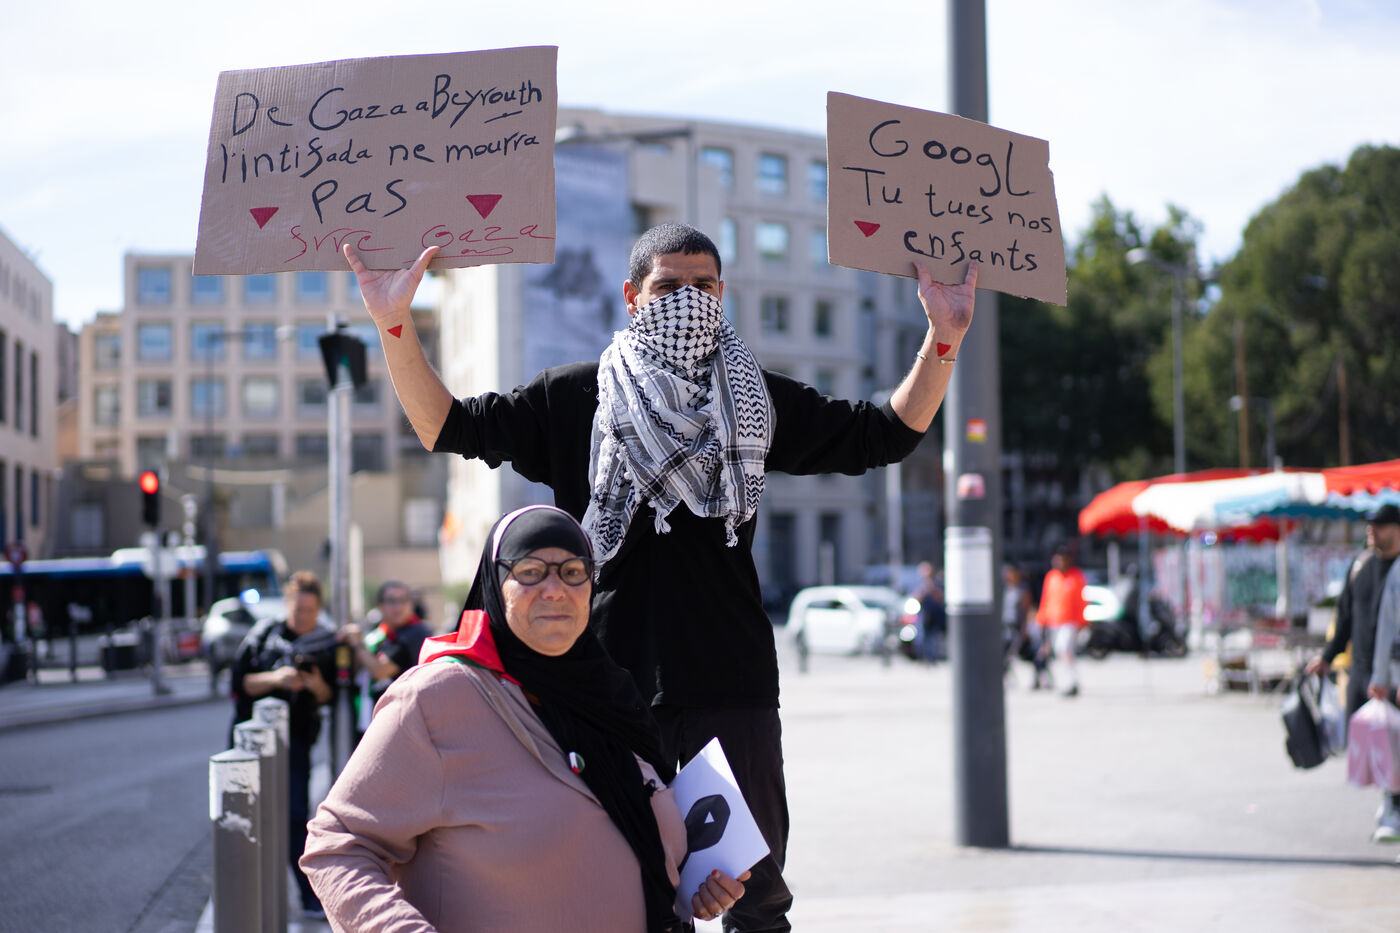 De Gaza a Beyrouth
l'intifada ne mourra
Pas
frre Gaza
Googl
Tu tues nos
enfants